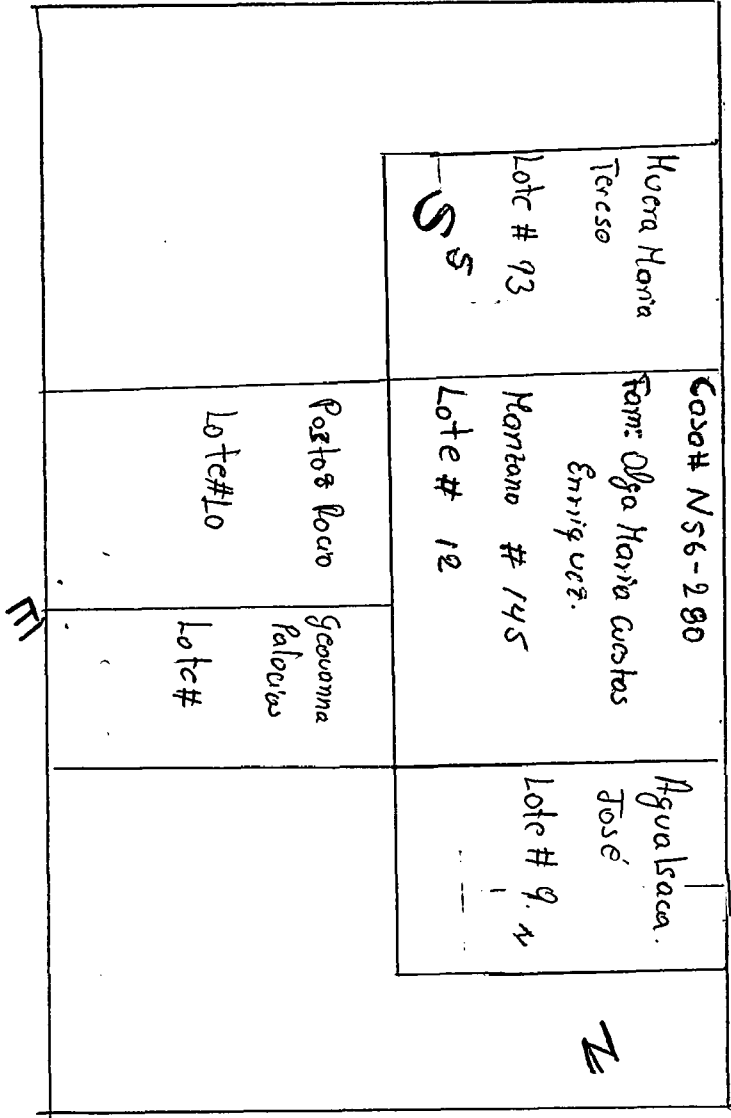 Huera Maria
Tereso
Lote # 93
S s
Casa# N56-280
Fam: Olga Maria Cuestas
Enrriquez.
Manzano # 145
Lote # 12
Agualsaca.
José
Lote # 9.
N
Pastoz Rocio
Lote#10
Geovanna
Palacios
Lote#
E